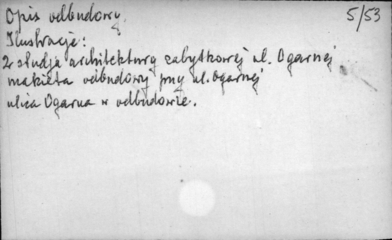 Opis odbudowy. 5/53
Ilustracje:
2 studja architektury zabytkowej ul. Ogarnej
makieta odbudowy przy ul. Ogarnej
ulica Ogarna w odbudowie.